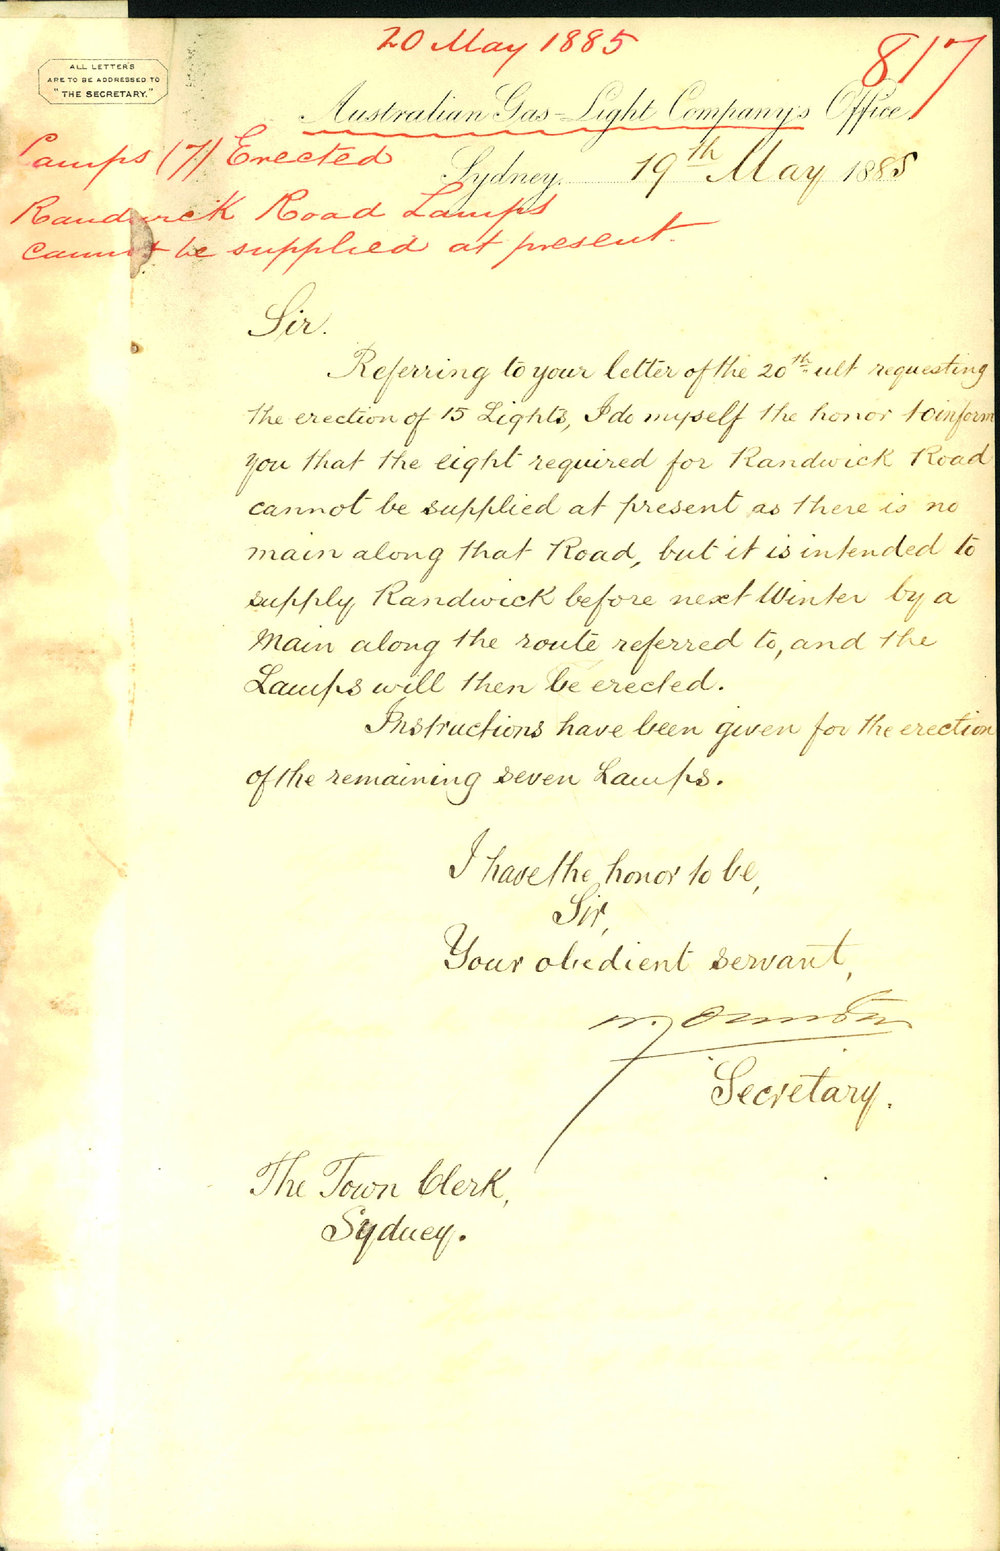 20 May 1885
817
ALL LETTERS
ARE TO BE ADDRESSED TO
"THE SECRETARY."
Australian Gas-Light Company's Office
Sydney. 19th May 1885
Lamps (7) Erected
Randwick Road Lamps
cannot be supplied at present.
Sir.
Referring to your letter of the 20th ult requesting
the erection of 15 Lights, I do myself the honor to inform
you that the eight required for Randwick Road
cannot be supplied at present as there is no
main along that Road, but it is intended to
supply Randwick before next Winter by a
Main along the route referred to, and the
Lamps will then be erected.
Instructions have been given for the erection
of the remaining seven Lamps.
I have the honor to be,
Sir,
Your obedient servant,
Secretary.
The Town Clerk,
Sydney.